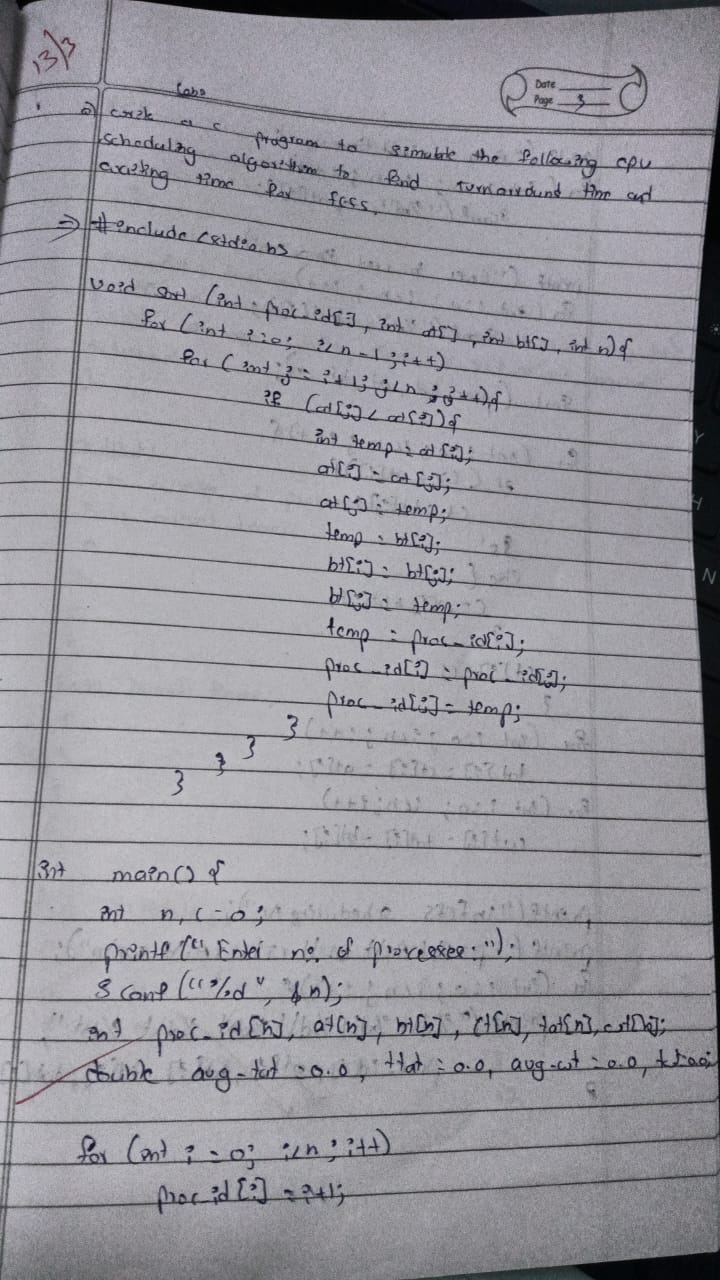 13/3
Date
Page 3
Lab
a c program to simulate the following cpu
scheduling algorithm to find turnaround time and
time for
=> #include <stdio.h>
void sort (int proc_id[], int at[], int bt[], int n){
for (int i=0; i<n-1; i++)
for (int j=i+1; j<n; j++){
if (at[j] < at[i]){
int temp = at[i];
at[i] = at[j];
at[j] = temp;
temp = bt[i];
bt[i] = bt[j];
bt[j] = temp;
temp = proc_id[i];
proc_id[i] = proc_id[j];
proc_id[j] = temp;
}
}
}
}
int main() {
int n, c=0;
printf ("Enter no. of processes: ");
scanf ("%d", &n);
int proc_id[n], at[n], bt[n], ct[n], tat[n], wt[n];
double avg-tat = 0.0, ttat = 0.0, avg-wt = 0.0,
for (int i=0; i<n; i++)
proc_id[i] = i+1;